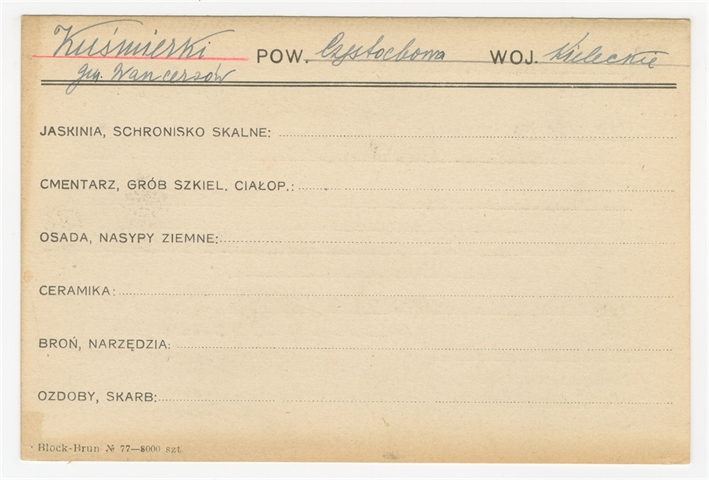 Kuśmierki POW. Częstochowa WOJ. Kieleckie
gm. Wancerzów
JASKINIA, SCHRONISKO SKALNE:
CMENTARZ, GRÓB SZKIEL. CIAŁOP.:
OSADA, NASYPY ZIEMNE:
CERAMIKA:
BROŃ, NARZĘDZIA:
OZDOBY, SKARB:
Block-Brun № 77—8000 szt.